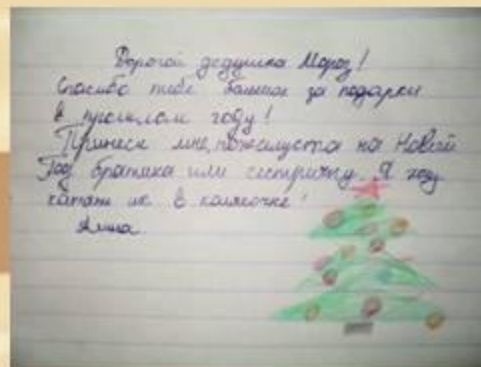 Дорогой дедушка Мороз!
Спасибо тебе большое за подарки
в прошлом году!
Принеси мне, пожалуйста на Новый
Год братика или сестричку. Я хочу
катать их в колясочке!
Алина